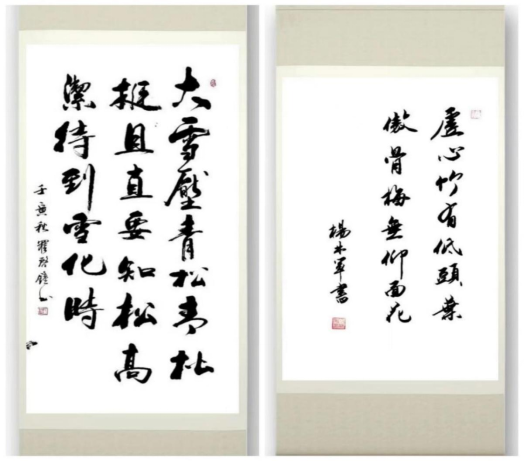 大雪壓青松青松
挺且直要知松高
潔待到雪化時
壬寅秋
虛心竹有低頭葉
傲骨梅無仰面花
楊木軍書